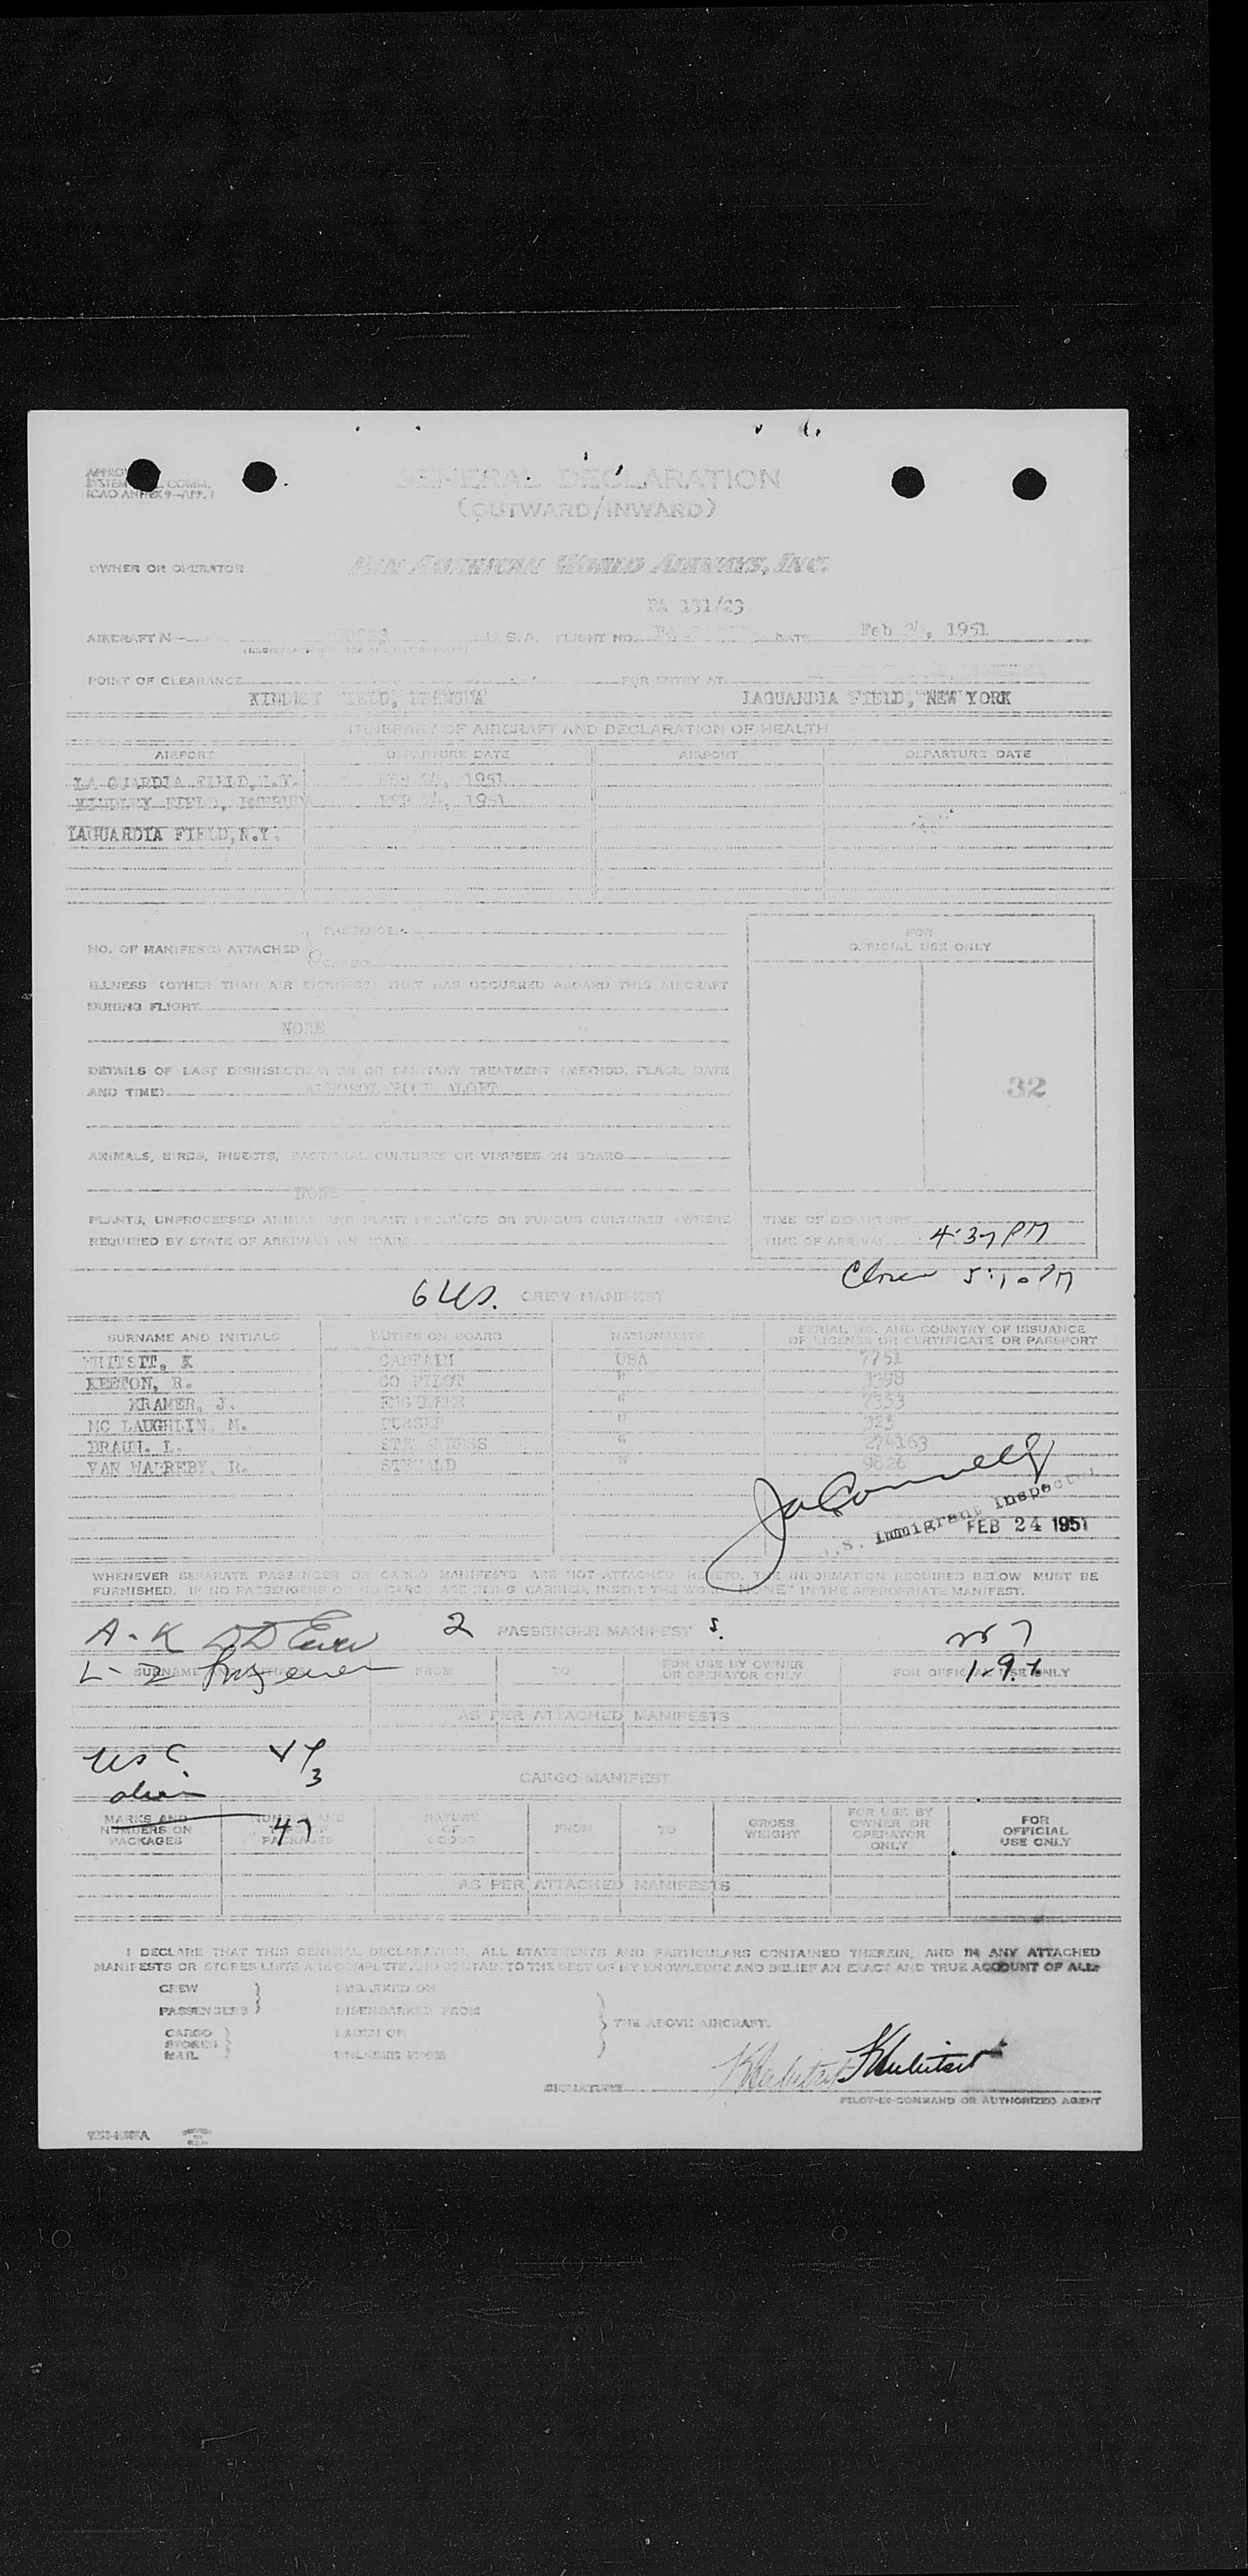 GENERAL DECLARATION
(OUTWARD/INWARD)
ICAO ANNEX 9—APP. 1
OWNER OR OPERATOR PAN AMERICAN WORLD AIRWAYS, INC.
PA 131/23
AIRCRAFT N— U.S.A. FLIGHT NO. DATE Feb 24, 1951
POINT OF CLEARANCE FOR ENTRY AT
KINDLEY FIELD, BERMUDA LAGUARDIA FIELD, NEW YORK
ITINERARY OF AIRCRAFT AND DECLARATION OF HEALTH
AIRPORT DEPARTURE DATE AIRPORT DEPARTURE DATE
LA GUARDIA FIELD, N.Y. FEB 24, 1951
KINDLEY FIELD, BERMUDA FEB 24, 1951
LAGUARDIA FIELD, N.Y.
PASSENGER
NO. OF MANIFESTS ATTACHED
CARGO
FOR
OFFICIAL USE ONLY
ILLNESS (OTHER THAN AIR SICKNESS) THAT HAS OCCURRED ABOARD THIS AIRCRAFT
DURING FLIGHT
NONE
DETAILS OF LAST DISINSECTIZATION OR SANITARY TREATMENT (METHOD, PLACE, DATE
AND TIME) AEROSOL BOMB ALOFT
32
ANIMALS, BIRDS, INSECTS, BACTERIAL CULTURES OR VIRUSES ON BOARD
NONE
PLANTS, UNPROCESSED ANIMAL AND PLANT PRODUCTS OR FUNGUS CULTURES (WHERE
REQUIRED BY STATE OF ARRIVAL) ON BOARD
TIME OF DEPARTURE
TIME OF ARRIVAL 4:37 PM
5:10 PM
6 US. CREW MANIFEST
SURNAME AND INITIALS DUTIES ON BOARD NATIONALITY SERIAL NO. AND COUNTRY OF ISSUANCE
OF LICENSE OR CERTIFICATE OR PASSPORT
WHITSIT, K CAPTAIN USA 7751
KEETON, R. CO PILOT " 3398
KRAMER, J. ENGINEER " 7353
MC LAUGHLIN, M. PURSER " 323
BRAUN, L. STEWARDESS " 274163
VAN WALREBY, R. STEWARD " 9626
U.S. Immigrant Inspector
FEB 24 1951
WHENEVER SEPARATE PASSENGER OR CARGO MANIFESTS ARE NOT ATTACHED HERETO, THE INFORMATION REQUIRED BELOW MUST BE
FURNISHED. IF NO PASSENGERS OR NO CARGO ARE BEING CARRIED, INSERT THE WORD "NONE" IN THE APPROPRIATE MANIFEST.
A - K 2 PASSENGER MANIFEST S.
L - Z
SURNAME FROM TO FOR USE BY OWNER
OR OPERATOR ONLY FOR OFFICIAL USE ONLY
AS PER ATTACHED MANIFESTS
USC
3
47
CARGO MANIFEST
MARKS AND
NUMBERS ON
PACKAGES NUMBER AND
TYPE OF
PACKAGES NATURE
OF
GOODS FROM TO GROSS
WEIGHT FOR USE BY
OWNER OR
OPERATOR
ONLY FOR
OFFICIAL
USE ONLY
AS PER ATTACHED MANIFESTS
I DECLARE THAT THIS GENERAL DECLARATION, ALL STATEMENTS AND PARTICULARS CONTAINED THEREIN, AND IN ANY ATTACHED
MANIFESTS OR STORES LISTS ARE COMPLETE AND CONTAIN TO THE BEST OF MY KNOWLEDGE AND BELIEF AN EXACT AND TRUE ACCOUNT OF ALL:
CREW EMBARKED ON
PASSENGERS DISEMBARKED FROM
THE ABOVE AIRCRAFT.
CARGO LADEN ON
STORES
MAIL UNLADEN FROM
SIGNATURE
PILOT-IN-COMMAND OR AUTHORIZED AGENT